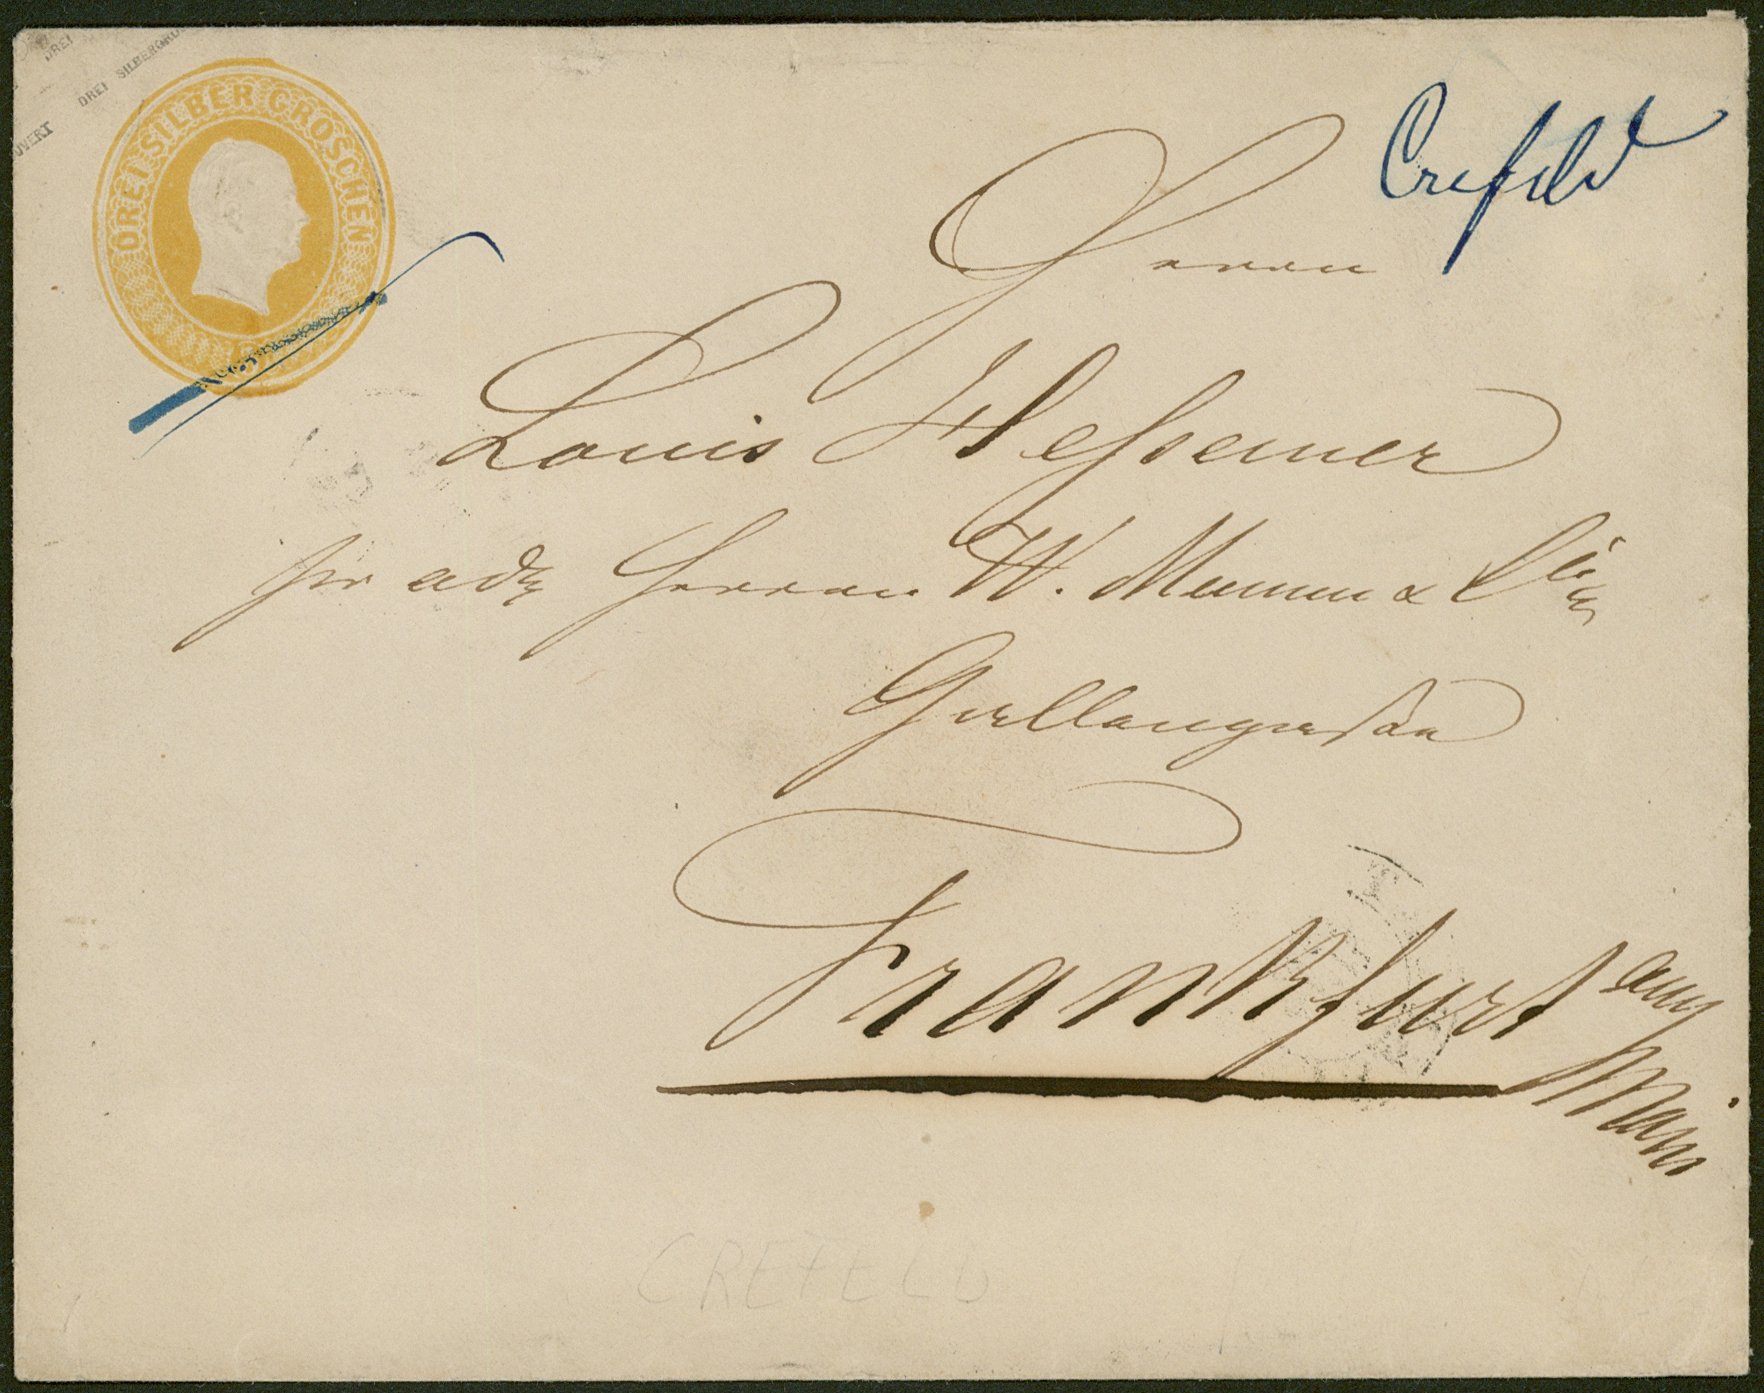 DREI
DREI SILBERGRO
UVERT
DREI SILBER GROSCHEN
Crefeld
Herrn
Louis Hessemer
pr adr Herren W. Mumm & Cie
Gallengasse
Frankfurt am
Main
CREFELD